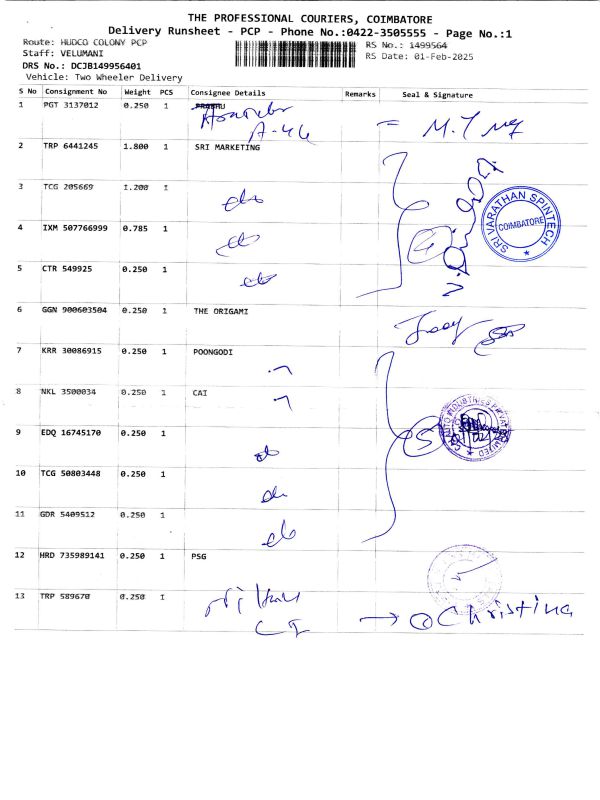 THE PROFESSIONAL COURIERS, COIMBATORE
Delivery Runsheet - PCP - Phone No.:0422-3505555 - Page No.:1
Route: HUDCO COLONY PCP
RS No.: 1499564
Staff: VELUMANI
RS Date: 01-Feb-2025
DRS No.: DCJB149956401
Vehicle: Two Wheeler Delivery
S No Consignment No Weight PCS Consignee Details Remarks Seal & Signature
1 PGT 3137012 0.250 1 PRABHU
A-44
2 TRP 6441245 1.800 1 SRI MARKETING
3 TCG 205669 1.200 1
SRI VARATHAN SPINTECH
COIMBATORE
4 IXM 507766999 0.785 1
4
5 CTR 549925 0.250 1
6 GGN 900603504 0.250 1 THE ORIGAMI
7 KRR 30086915 0.250 1 POONGODI
8 NKL 3500034 0.250 1 CAI
9 EDQ 16745170 0.250 1
5
AUTO INDUSTRIES PRIVATE LIMITED
10 TCG 50803448 0.250 1
11 GDR 5409512 0.250 1
12 HRD 735989141 0.250 1 PSG
13 TRP 589670 0.250 1
→ Christina